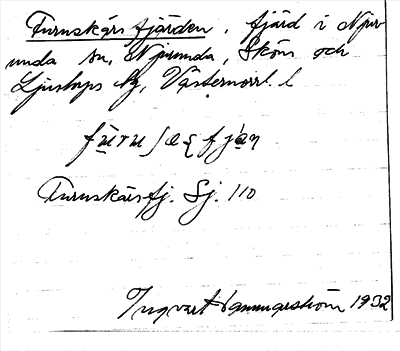 Furuskärsfjärden, fjärd i Njur
unda sn, Njurunda, Sköns och
Ljustorps tg, Västernorrl. l
Furuskärsfj. Sj. 110
Ingvart Hammarström 1932